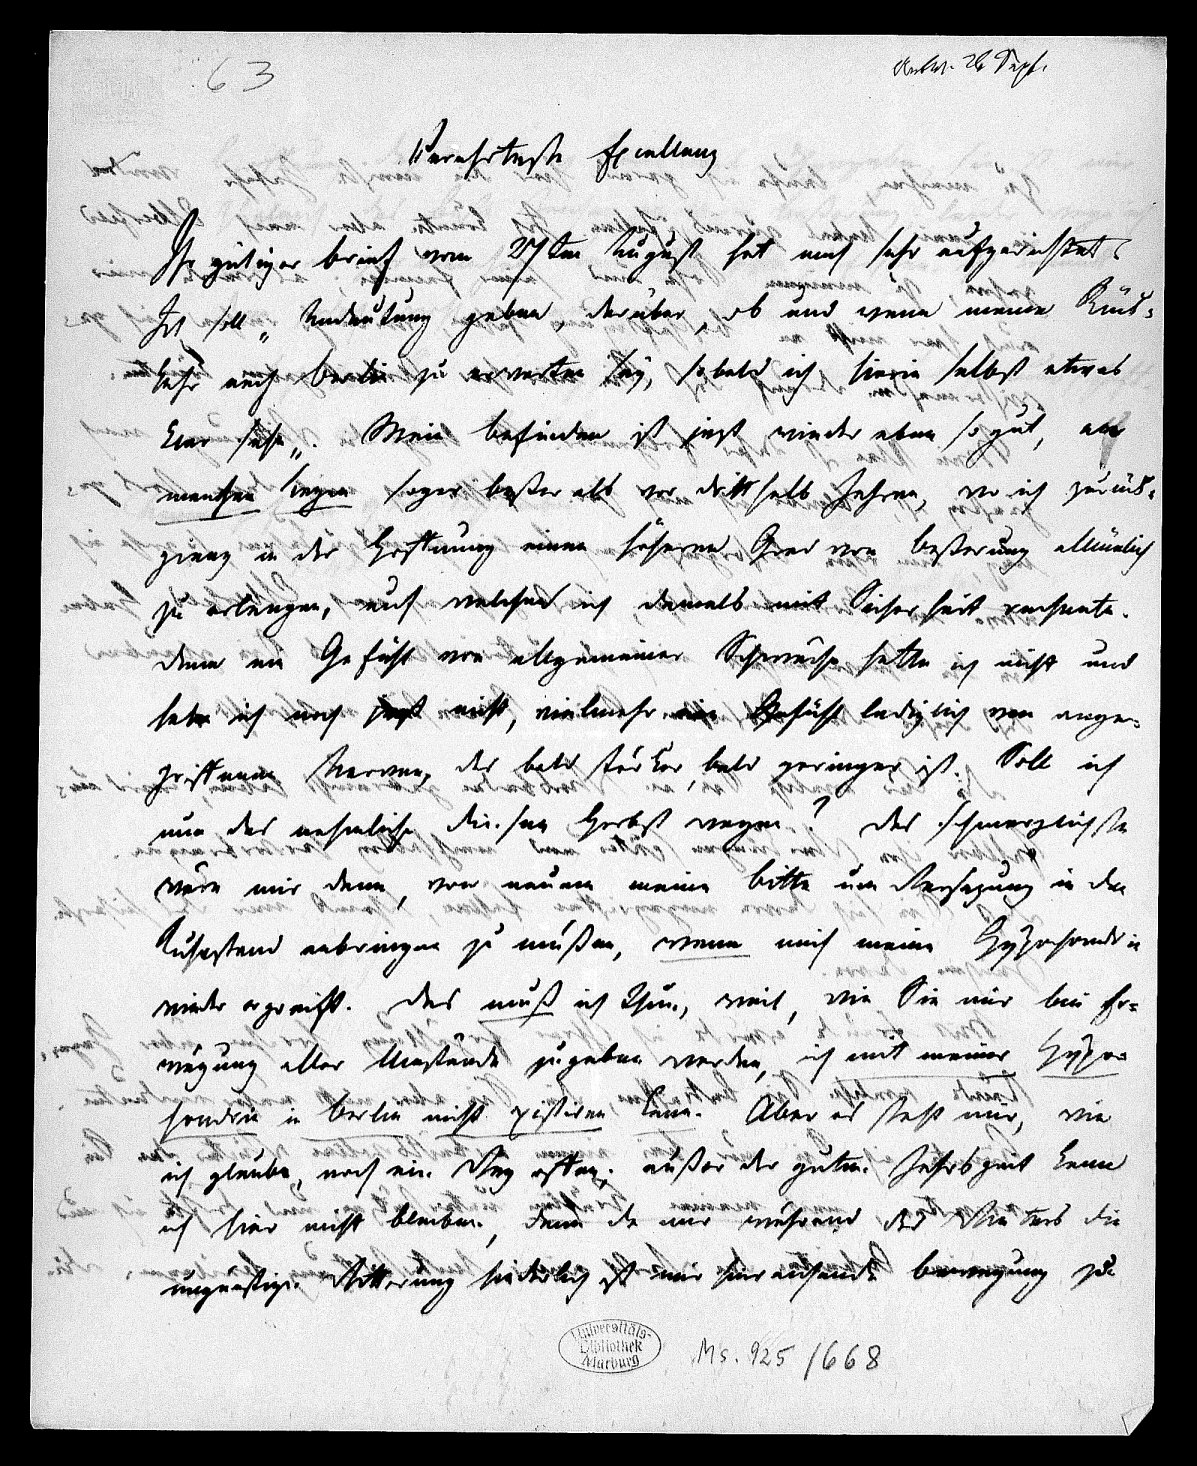 63
Antw. 26 Sept.
Verehrteste Excellenz
Ihr gütiger brief vom 27sten August hat mich sehr aufgerichtet.
Ich soll „Andeutung geben, darüber, ob und wenn meine Rück-
kehr nach berlin zu erwarten sey, sobald ich hierin selbst etwas
klar sehe„. Mein befinden ist jezt wieder eben so gut, an
manchen tagen sogar beßer als vor dritthalb Jahren, wo ich zurück-
gieng in der Hoffnung einen höheren Grad von beßerung allmälich
zu erlangen, auf welchen ich damals mit Sicherheit rechnete.
denn ein Gefühl von allgemeiner Schwäche hatte ich nicht und
habe ich noch jezt nicht, vielmehr ein Gefühl lediglich von ange-
griffenen Nerven, das bald stärker, bald geringer ist. Soll ich
nun das nehmliche diesen Herbst wagen? das schmerzlichste
wäre mir dann, von neuem meine bitte um Versezung in den
Ruhestand anbringen zu müßen, wenn mich meine Hypochondrie
wieder ergreift. das muß ich thun, weil, wie Sie mir bei Er-
wägung aller Umstände zugeben werden, ich mit meiner Hypo-
chondrie in berlin nicht existiren kann. Aber es steht mir, wie
ich glaube, noch ein Weg offen. außer der guten Jahrszeit kann
ich hier nicht bleiben, denn da mir während des Winters die
ungünstige Witterung hinderlich ist mir hinreichende bewegung zu
Universitäts-
Bibliothek
Marburg
Ms. 925/668